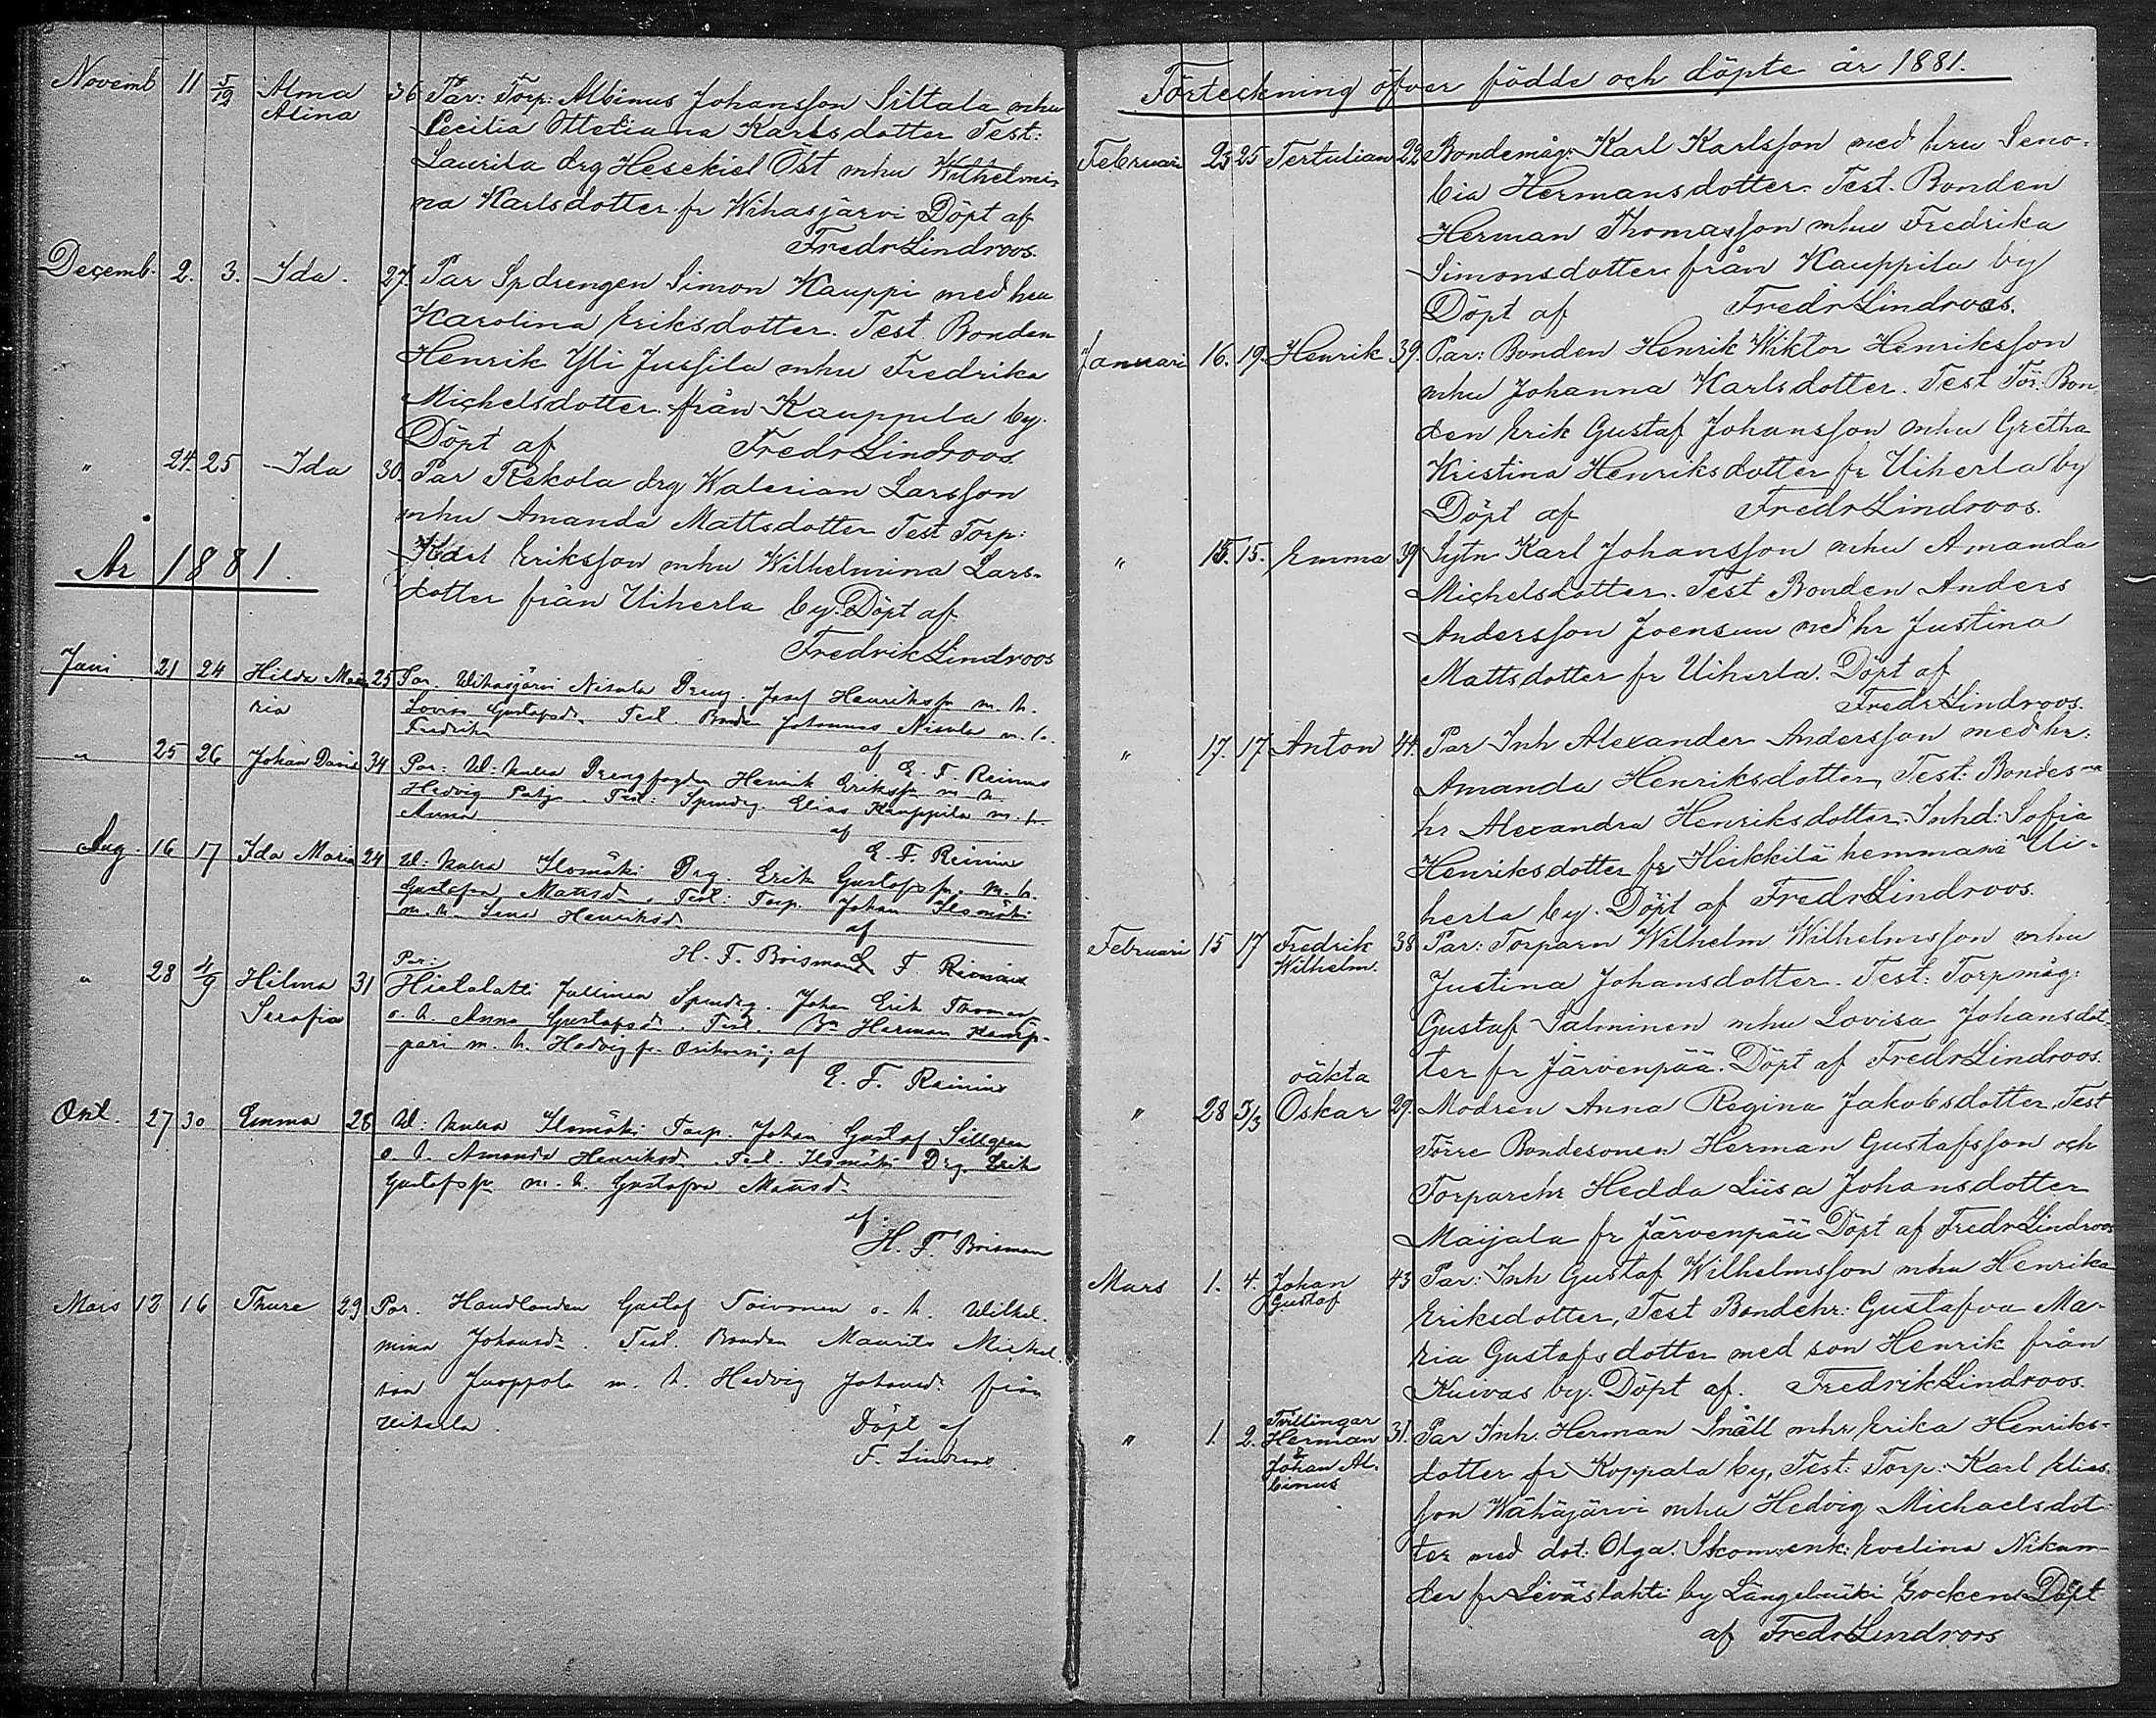 Novemb 11 5/12 Alma 36 Par: Torp: Albinus Johansson Siltala mhu
Alina Cecilia Ottetiana Karlsdotter Test:
Laurila drg Hesekiel Öst mhu Wilhelmi-
na Karlsdotter fr Wihasjärvi Döpt af
Fredr Lindroos.
Decemb. 2. 3. Ida. 27. Par Spdrengen Simon Kauppi med hu
Karolina Eriksdotter. Test Bonden
Henrik Yli Jussila mhu Fredrika
Michelsdotter från Kauppila by.
Döpt af Fredr Lindroos.
" 24. 25 Ida 30. Par Rekola drg Walerian Larsson
mhu Amanda Mattsdotter Test Torp:
Karl Eriksson mhu Wilhelmina Lars-
dotter från Uiherla by. Döpt af
Fredrik Lindroos
År 1881.
Juni 21 24 Hilda Ma- 25 Par. Wihasjärvi Nisula Dreng. Josef Henrikss. m. h.
ria Lovisa Gustafsdr Test. Bonden Johannes Nisula m. h.
Fredrika af
E. F. Reinius
" 25 26 Johan David 34 Par: Drengfogden Henrik Erikss. m h
Hedvig Test: Spmdrg. Elias Kauppila m. h.
Anna af
E. F. Reinius
Aug. 16 17 Ida Maria 24 Ilomäki Drg. Erik Gustafss. m. h.
Gustafva Mattsd. Test: Torp. Johan Ilomäki
m. h. Lena Henriksd. af
H. F. Boisman E. F. Reinius
" 28 4/9 Hilma 31 Par:
Serafia Hietalahti Jullinen Johan Erik
o. h. Anna Gustafsd. Test. Herman Kamp-
pari m. h. Hedvig fr. af
E. F. Reinius
Okt. 27 30 Emma 26 Ilomäki Torp. Johan Gustaf
o. h. Amanda Henriksd. Test. Ilomäki Drg. Erik
Gustafss. m. h. Gustafva Mattsd.
af
H. F. Boisman
Mars 13 16 Thure 29. Par. Handlanden Gustaf Toivonen o. h. Wilhel-
mina Johansdr. Test. Bonden Maurits Mickel-
son Juoppola m. h. Hedvig Johansd. från
Uiherla. Döpt af
F. Lindroos
Förteckning öfver födde och döpte år 1881.
Februari 23 25 Tertulian 22 Bondemåg: Karl Karlsson med hru Seno-
bia Hermansdotter. Test. Bonden
Herman Thomasson mhu Fredrika
Simonsdotter från Kauppila by
Döpt af Fredr Lindroos.
Januari 16. 19. Henrik 39. Par: Bonden Henrik Wiktor Henriksson
mhu Johanna Karlsdotter. Test För: Bon-
den Erik Gustaf Johansson mhu Gretha
Kristina Henriksdotter fr Uiherla by
Döpt af Fredr Lindroos.
" 15. 15. Emma 39 Sytn Karl Johansson mhu Amanda
Michelsdotter. Test Bonden Anders
Andersson Joensuu med hr Justina
Mattsdotter fr Uiherla. Döpt af
Fredr Lindroos.
" 17. 17 Anton 44. Par Inh Alexander Andersson med hr:
Amanda Henriksdotter, Test: Bondes
hr Alexandra Henriksdotter. Inhd: Sofia
Henriksdotter fr Heikkilä hemman i Ui-
herla by. Döpt af Fredr Lindroos.
Februari 15 17 Fredrik 38 Par: Torparn Wilhelm Wilhelmsson mhu
Wilhelm. Justina Johansdotter. Test: Torpmåg:
Gustaf Salminen mhu Lovisa Johansdot-
ter fr Järvenpää. Döpt af Fredr Lindroos.
oäkta
" 28 5/3 Oskar 29. Modren Anna Regina Jakobsdotter, Test
Förre Bondesonen Herman Gustafsson och
Torparehr Hedda Liisa Johansdotter
Maijala fr Järvenpää Döpt af Fredr Lindroos
Mars 1. 4. Johan 43 Par: Inh Gustaf Wilhelmsson mhu Henrika
Gustaf Eriksdotter, Test Bondehr: Gustafva Ma-
ria Gustafsdotter med son Henrik från
Kuivas by. Döpt af. Fredrik Lindroos.
" 1. 2. Tvillingar
Herman 31. Par Inh. Herman Snäll mhr Erika Henriks-
& Johan Al- dotter fr Koppala by, Test: Torp: Karl Elias-
binus son Wähäjärvi mhu Hedvig Michaelsdot-
ter med dot: Olga. Skom:enk: Evelina Nikan-
der fr Leväslahti by Längelmäki Socken Döpt
af Fredr Lindroos